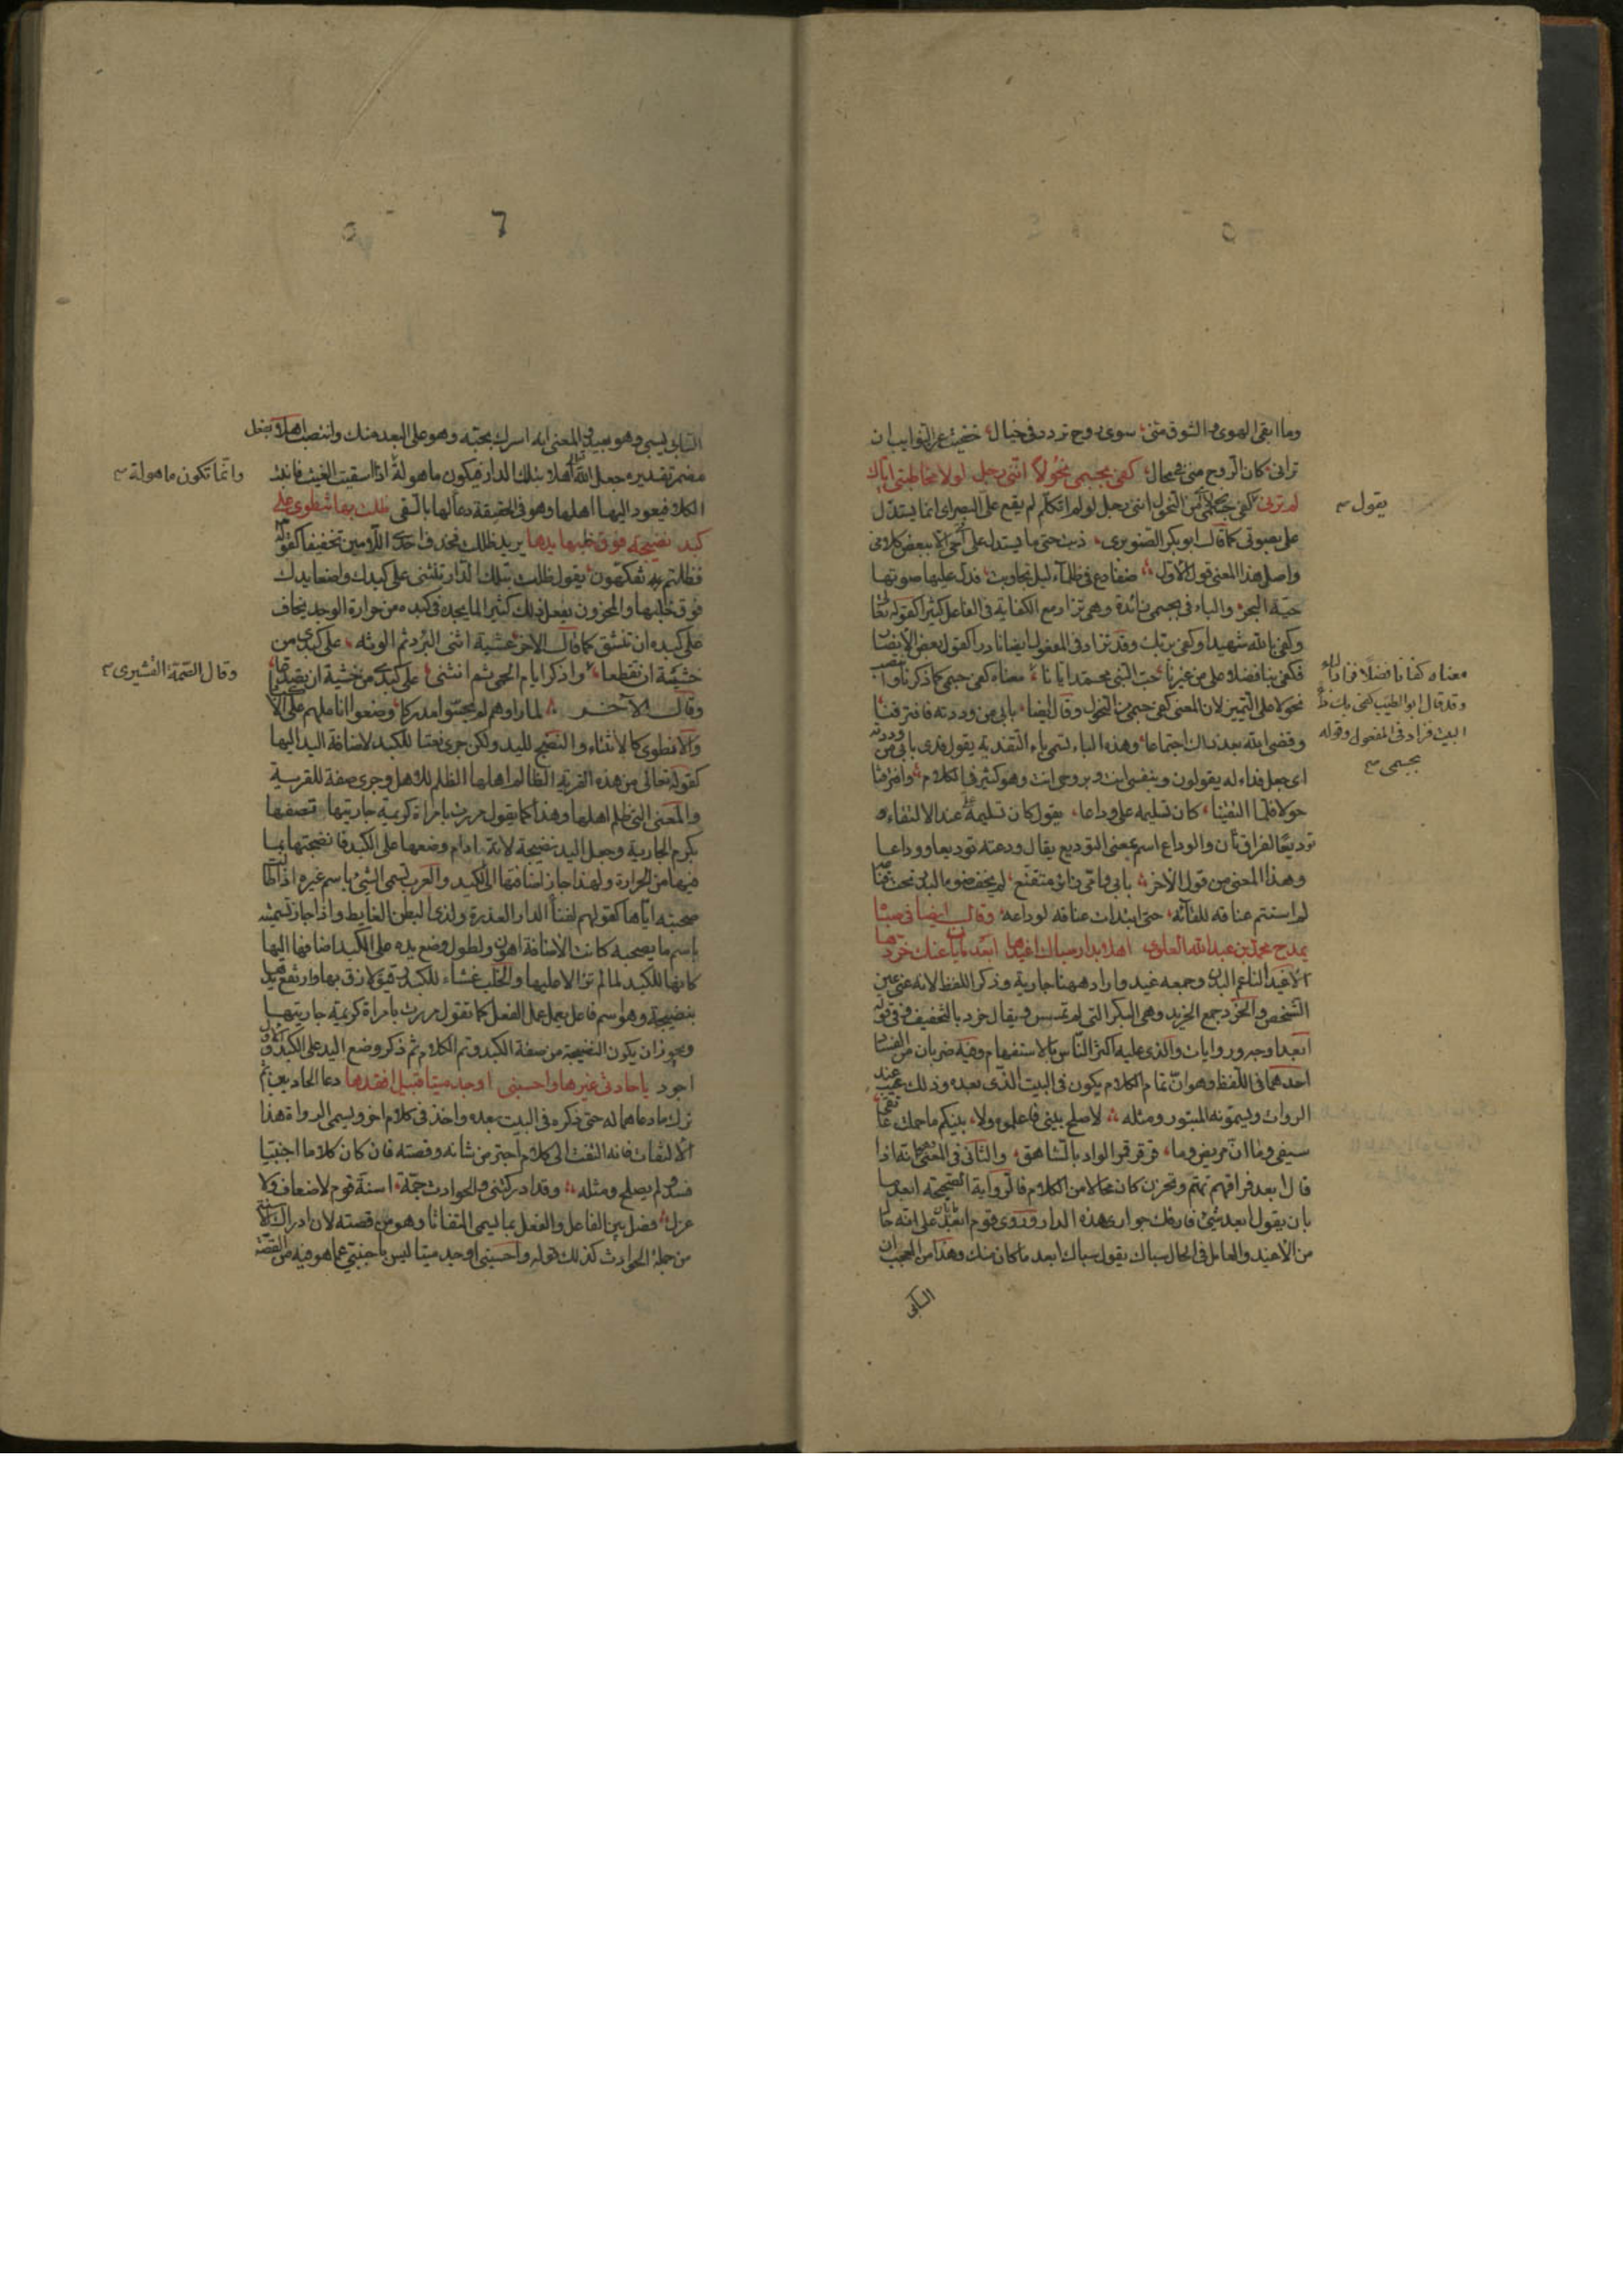 وما ابقى الهوى والشوق منى سوى روح تردد فى خيال خفيت عن النوايب ان
ترانى كان الروح منى فى محال كفى بجسمى نحولا اننى رجل لولا مخاطبتى اياك
لم ترنى كفى بجسمى من النحول اننى رجل لو لم اتكلم لم يقع على البصر اى انما يستدل
على بصوتى كما قال ابو بكر الصنوبرى ذبت حتى ما يستدل على انى حى الا ببعض كلامى
واصل هذا المعنى قول الاول ضفادع فى ظلماء ليل تجاوبت فدل عليها صوتها
حية البحر والباء فى بجسمى زائدة وهى تزاد مع الكفاية فى الفاعل كثيرا كقوله تعالى
وكفى بالله شهيدا وكفى بربك وقد تزاد فى المفعول ايضا نادرا كقول بعض الانصار
فكفى بنا فضلا على من غيرنا حب النبى محمد ايانا معناه كفى جسمى كما ذكرنا وانتصب
نحولا على التمييز لان المعنى كفى جسمى من النحول وقال ايضا بابى من وددته فافترقنا
وقضى الله بعد ذاك اجتماعا وهذه الباء تسمى باء التفدية يقول فدى بابى من وددته
اى جعل فداء له يقولون وبنفسى انت وبروحى انت وهو كثير فى الكلام وافترقنا
حولا فلما التقينا كان تسليمه على وداعا يقول كان تسليمه على عند الالتقاء
توديعا لفراق ثان والوداع اسم بمعنى التوديع يقال ودعته توديعا ووداعا
وهذا المعنى من قول الاخر بابى وامى زائر متقنع لم يخف ضوء البدر تحت قناعه
لم استتم عناقه للقائه حتى ابتدات عناقه لوداعه وقال ايضا فى صباه
يمدح محمد بن عبد الله العلوى اهلا بدار سباك اغيدها ابعد ما بان عنك خردها
الاغيد الناعم البدن وجمعه غيد واراد ههنا جارية وذكر اللفظ لانه عنى عين
الشخص والخرد جمع الخريد وهى البكر التى لم تمسس ويقال خرد بالتخفيف وفى قوله
ابعد اوجه وروايات والذى عليه اكثر الناس بالاستفهام وفيه ضربان من الفساد
احدهما فى اللفظ وهو ان تمام الكلام يكون فى البيت الذى بعده وذلك عيب عند
الرواة ويسمونه المبتور ومثله لا صلح بينى فاعلموه ولا بينكم ما حملت عاتقى
سيفى وما ان مريض وما قرقر قمر الواد بالشاهق والثانى فى المعنى وهو انه اذا
قال ابعد فراقهم تهتم وتحزن كان محالا من الكلام فالرواية الصحيحة ابعد ما
بان يقول ابعد شئ فارقك جوارى هذه الدار وروى قوم ابعد على انه حال
من الاغيد والعامل فى الحال سباك يقول سباك ابعد ما كان منك وهذا من العجب ان
السابى
يقول
معناه كفانا فضلا فزاد الباء
وقد قال ابو الطيب كفى بك داء
البيت فزاد فى المفعول وقوله
بجسمى
السابى يسبى وهو بعيد والمعنى انه اسرك بحبه وهو على البعد منك وانتصب اهلا بفعل
مضمر تقديره جعل الله اهلا بتلك الدار فتكون ماهولة اذا سقيت الغيث فانبت
الكلا فيعود اليها اهلها وهو فى الحقيقة دعا لها بالسقى ظلت بها تنطوى على
كبد نضيجة فوق خلبها يدها يريد ظللت فحذف احدى اللامين تخفيفا كقوله
فظلتم تفكهون يقول ظللت بتلك الدار تنثنى على كبدك واضعا يدك
فوق خلبها والمحزون يفعل ذلك كثيرا لما يجد فى كبده من حرارة الوجد يخاف
على كبده ان تنشق كما قال الاخر عشية اثنى البرد ثم الوثه على كبدى من
خشية ان تقطعا واذكر ايام الحمى ثم انثنى على كبدى من خشية ان تصدعا
وقال الاخر لما راوهم لم يحسوا مدركا وضعوا اناملهم على الاكباد
والانطوى كالانثناء والنضج لليد ولكن جرى نعتا للكبد لاضافة اليد اليها
كقوله تعالى من هذه القرية الظالم اهلها الظلم للاهل وجرى صفة للقرية
والمعنى التى ظلم اهلها وهذا كما يقول مررت بامراة كريمة جاريتها تصفها
بكرم الجارية وجعل اليد نضيجة لانه ادام وضعها على الكبد فانضجتها بما
فيها من الحرارة ولهذا جاز اضافتها الى الكبد والعرب تسمى الشئ باسم غيره اذا طالت
صحبته اياها كقولهم لفناء الدار العذرة ولذى البطن الغايط واذا جاز تسميته
باسم ما يصحبه كانت الاضافة اهون ولطول وضع يده على الكبد اضافها اليها
كانها للكبد لما لم تزل عليها والخلب غشاء للكبد رقيق لازق بها وارتفع يدها
بنضيجة وهو اسم فاعل يعمل عمل الفعل كما تقول مررت بامراة كريمة جاريتها
ويجوز ان يكون النضيجة من صفة الكبد وتم الكلام ثم ذكر وضع اليد على الكبد والاول
اجود يا حاديى عيرها واحسبنى اوجد ميتا قبيل افقدها دعا الحاديين ثم
ترك ما دعاهما له حتى ذكره فى البيت بعده واخذ فى كلام اخر ويسمى الرواة هذا
الالتفات فانه التفت الى كلام اخر من شانه وقصته فان كان كلاما اجنبيا
فسد ولم يصلح ومثله وقد ادركتنى والحوادث جمة اسنة قوم لا ضعاف ولا
عزل فصل بين الفاعل والفعل بما يسمى التفاتا وهو من قصته لان ادراك الاسنة
من جملة الحوادث كذلك قوله واحسبنى اوجد ميتا ليس باجنبى عما هو فيه من القصة
وانما تكون ماهولة
وقال الصمة القشيرى